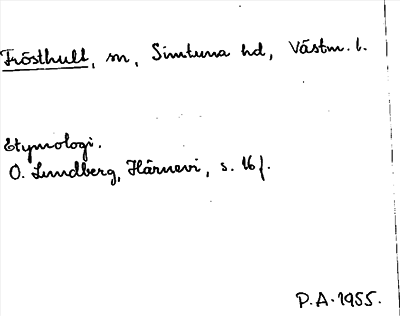 Frösthult, sn, Simtuna hd, Västm. l.
Etymologi.
O. Lundberg, Härnevi, s. 16 f.
P.A. 1955.